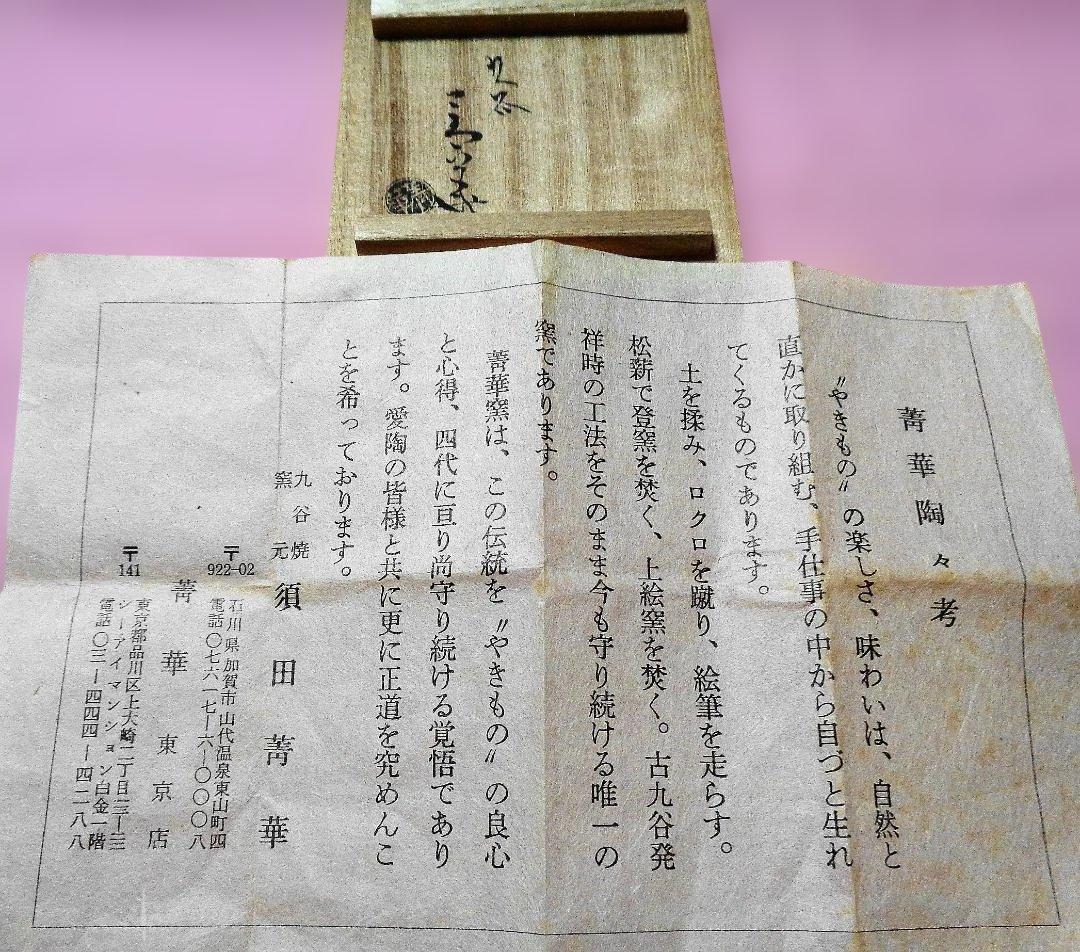 九谷
菁華陶々考
〝やきもの〟の楽しさ、味わいは、自然と
直かに取り組む、手仕事の中から自づと生れ
てくるものであります。
土を揉み、ロクロを蹴り、絵筆を走らす。
松薪で登窯を焚く、上絵窯を焚く。古九谷発
祥時の工法をそのまま今も守り続ける唯一の
窯であります。
菁華窯は、この伝統を〝やきもの〟の良心
と心得、四代に亘り尚守り続ける覚悟であり
ます。愛陶の皆様と共に更に正道を究めんこ
とを希っております。
九谷焼
窯元
須田菁華
〒922-02
石川県加賀市山代温泉東山町四
電話〇七六一七―六―〇〇〇八
菁華東京店
〒141
東京都品川区上大崎二丁目
シーアイマンション白金一階
電話〇三―四四四―四二八八